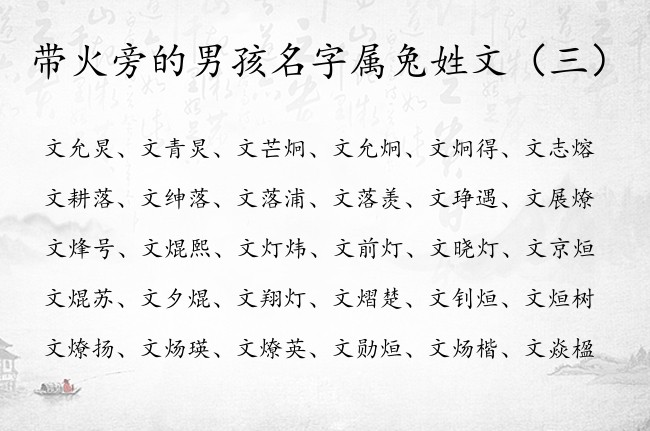 带火旁的男孩名字属兔姓文（三）
文允炅、文青炅、文芒炯、文允炯、文炯得、文志熔
文耕落、文绅落、文落浦、文落羡、文琤遇、文展燎
文烽号、文焜熙、文灯炜、文前灯、文晓灯、文京烜
文焜苏、文夕焜、文翔灯、文熠楚、文钊烜、文烜树
文燎扬、文炀瑛、文燎英、文勋烜、文炀楷、文焱楹